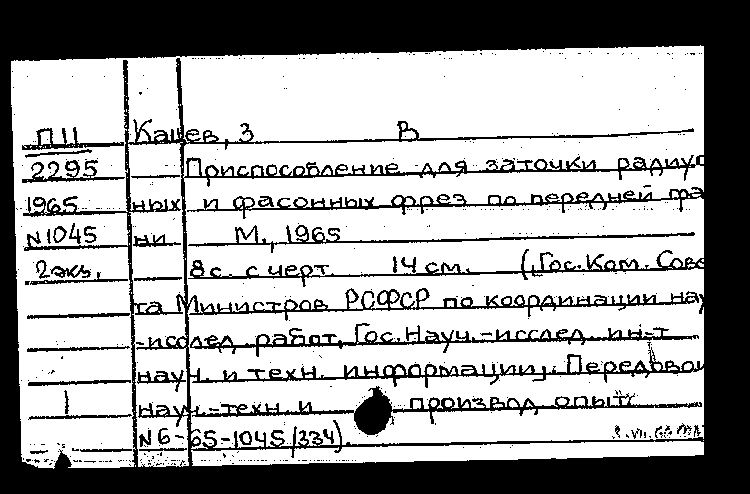 П11 Кацев, З В
2295 Приспособление для заточки радиус
1965 ных и фасонных фрез по передней гра
N1045 ни М., 1965
2экз. 8с. с черт 14 см. („Гос. Ком. Сове
та Министров РСФСР по координации нау
-исслед работ, Гос. Науч.-исслед. ин-т
науч. и техн. информации". Передовой
1 науч.-техн. и производ опыт
N 6-65-1045/334).